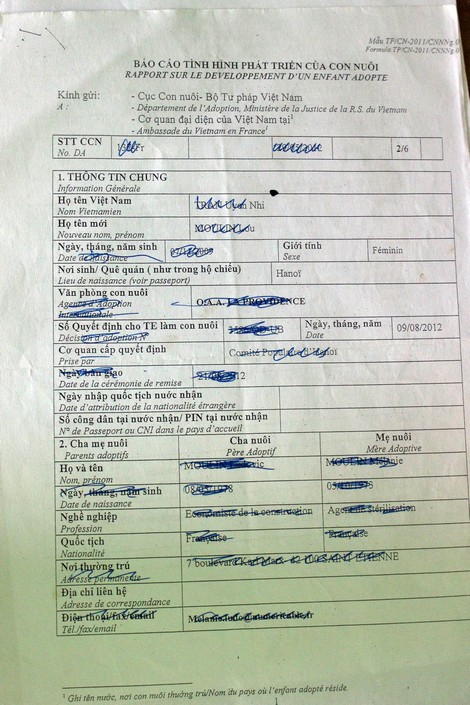 Mẫu TP/CN-2011/CNNNg.
Formule TP/CN-2011/CNNNg.
BÁO CÁO TÌNH HÌNH PHÁT TRIỂN CỦA CON NUÔI
RAPPORT SUR LE DEVELOPPEMENT D'UN ENFANT ADOPTE
Kính gửi: - Cục Con nuôi- Bộ Tư pháp Việt Nam
A : - Département de l'Adoption, Ministère de la Justice de la R.S. du Vietnam
- Cơ quan đại diện của Việt Nam tại¹
- Ambassade du Vietnam en France¹
STT CCN
No. DA
2/6
1. THÔNG TIN CHUNG
Information Générale
Họ tên Việt Nam
Nom Vietnamien
Nhi
Họ tên mới
Nouveau nom, prénom
Ngày, tháng, năm sinh
Date de naissance
Giới tính
Sexe
Féminin
Nơi sinh/ Quê quán ( như trong hộ chiếu)
Lieu de naissance (voir passeport)
Hanoï
Văn phòng con nuôi
Agence d'Adoption
Internationale
O.A.A.
Số Quyết định cho TE làm con nuôi
Décision d'adoption N°
Ngày, tháng, năm
Date
09/08/2012
Cơ quan cấp quyết định
Prise par
Comité
Ngày bàn giao
Date de la cérémonie de remise
Ngày nhập quốc tịch nước nhận
Date d'attribution de la nationalité étrangère
Số công dân tại nước nhận/ PIN tại nước nhận
N° de Passeport ou CNI dans le pays d'accueil
2. Cha mẹ nuôi
Parents adoptifs
Cha nuôi
Père Adoptif
Mẹ nuôi
Mère Adoptive
Họ và tên
Nom, prénom
Ngày, tháng, năm sinh
Date de naissance
Nghề nghiệp
Profession
Economiste de la construction
stérilisation
Quốc tịch
Nationalité
Française
Française
Nơi thường trú
Adresse permanente
7 boulevard
Địa chỉ liên hệ
Adresse de correspondance
Điện thoại/fax/email
Tél./fax/email
¹ Ghi tên nước, nơi con nuôi thường trú/Nom du pays où l'enfant adopté réside.
1